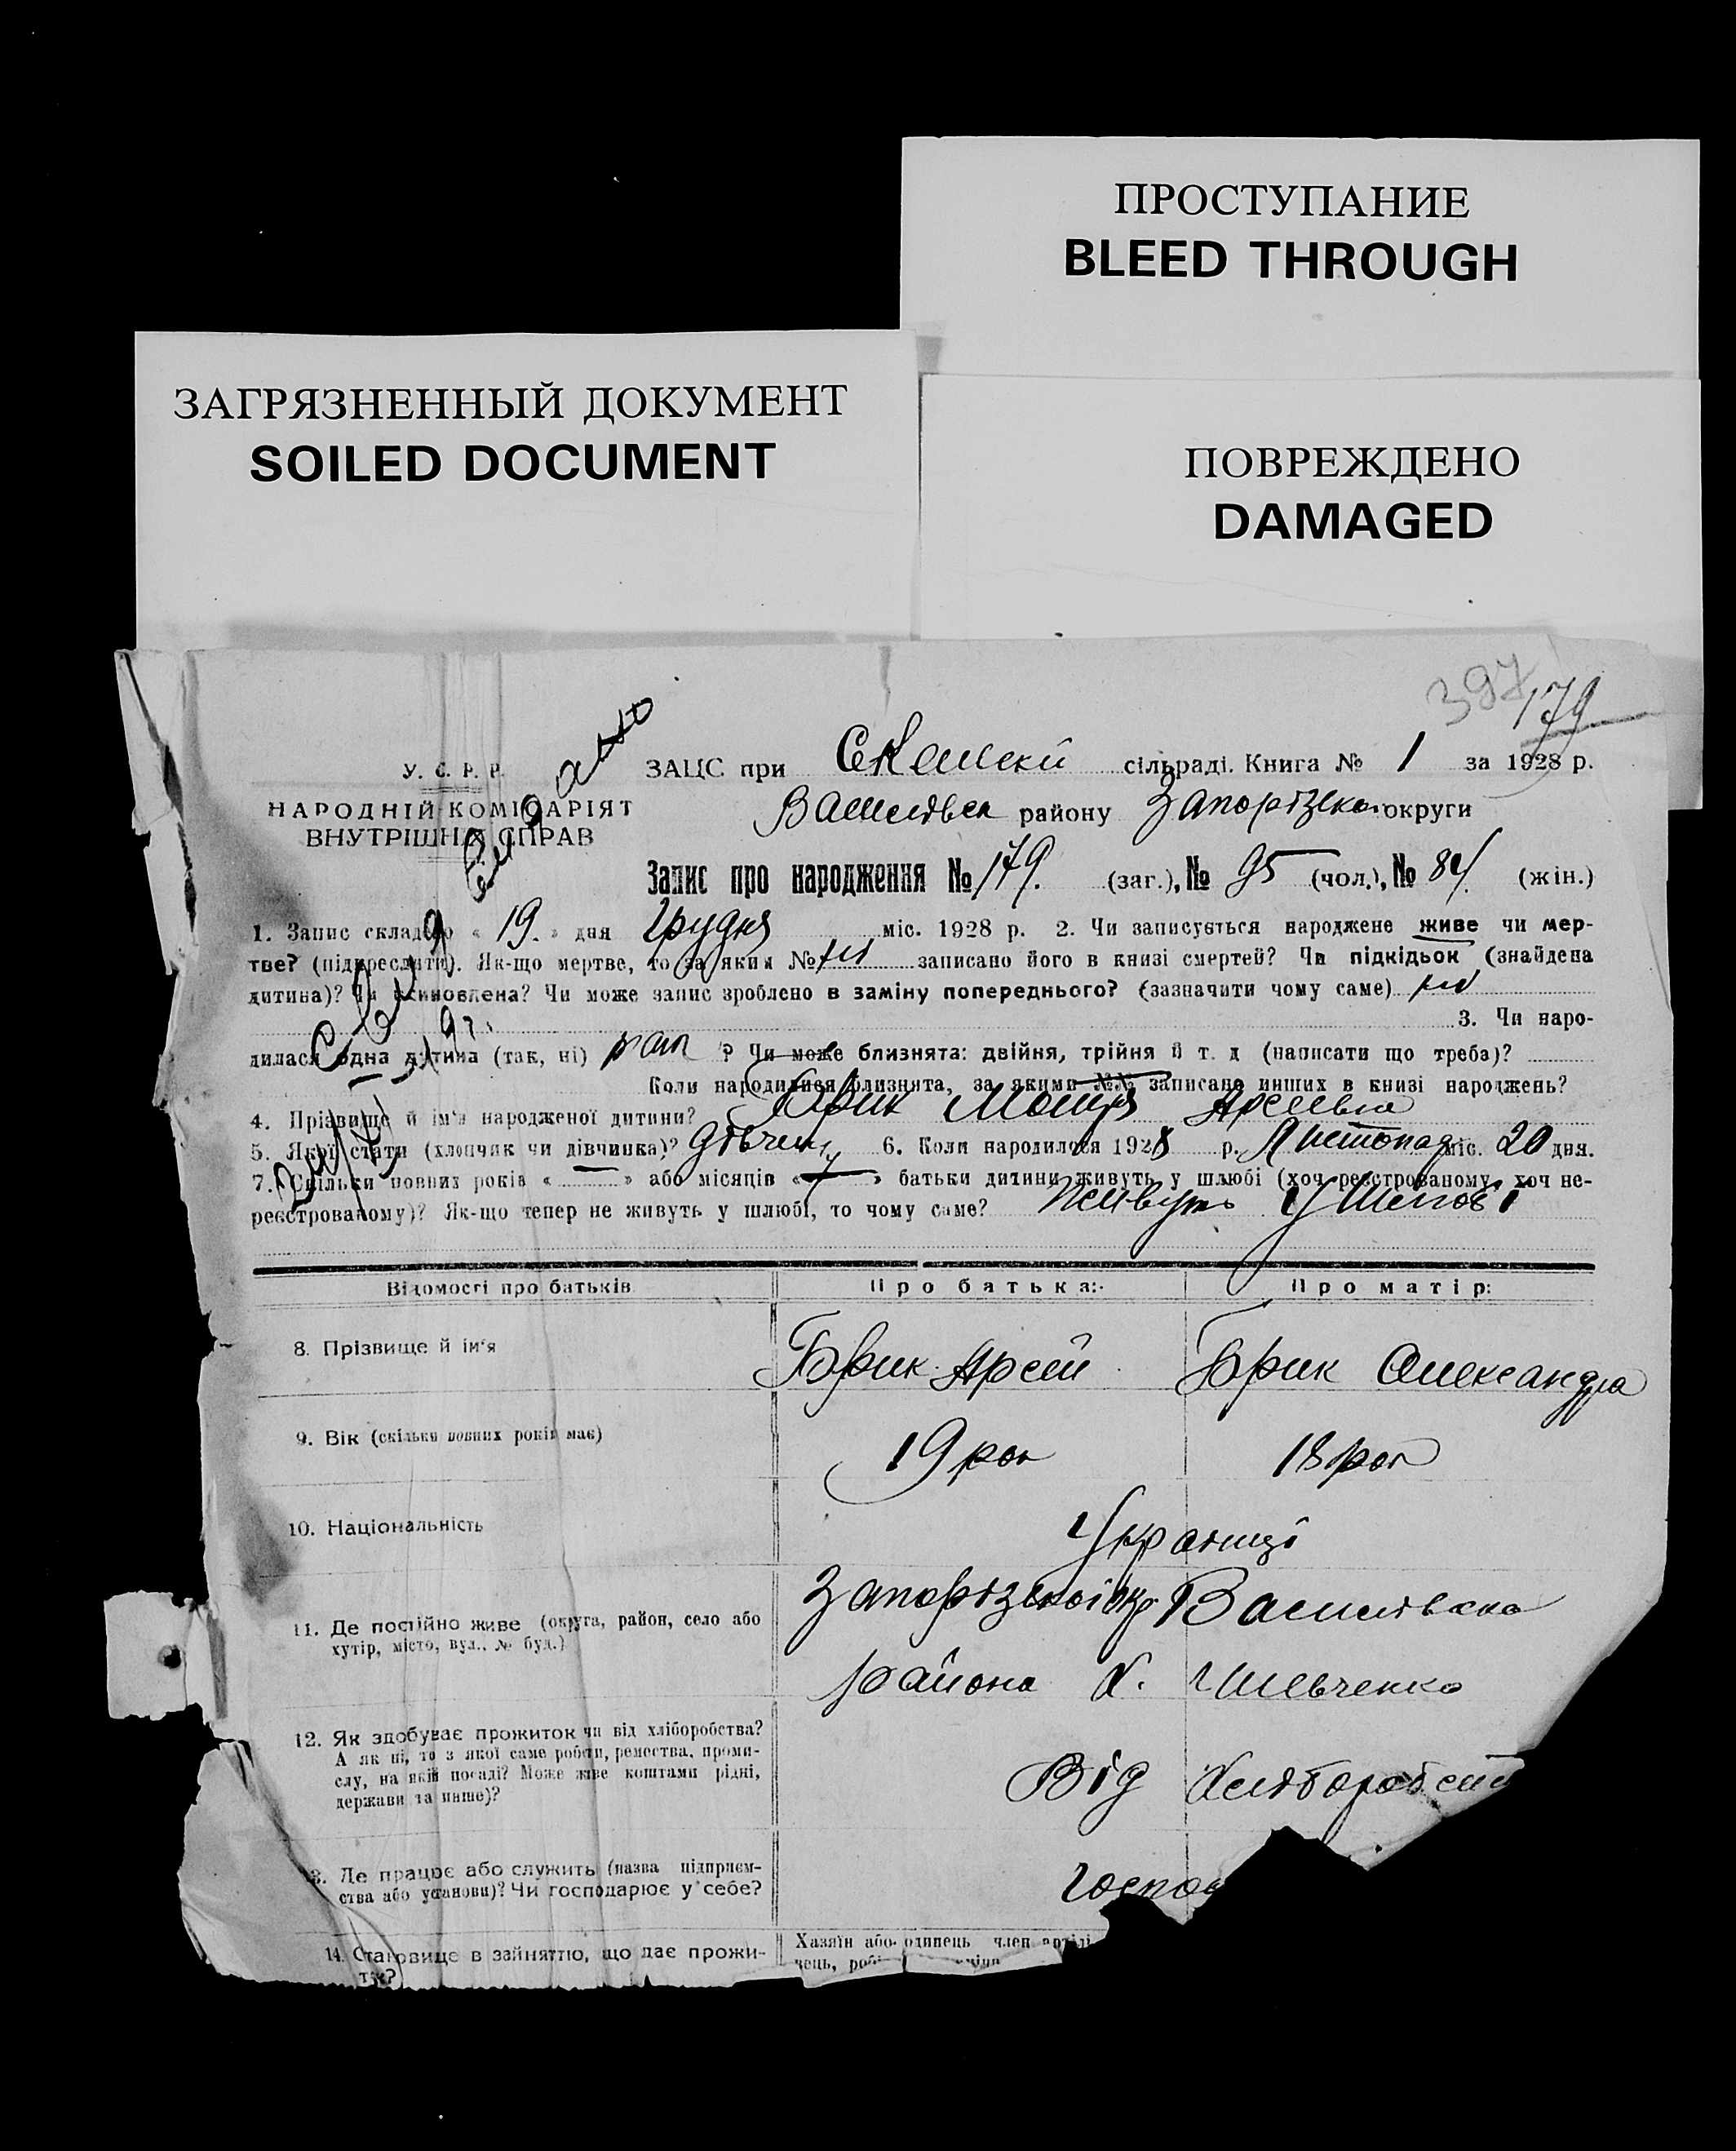 ПРОСТУПАНИЕ
BLEED THROUGH
ЗАГРЯЗНЕННЫЙ ДОКУМЕНТ
SOILED DOCUMENT
ПОВРЕЖДЕНО
DAMAGED
397
179
У. С. Р. Р.
НАРОДНІЙ КОМІСАРІЯТ
ВНУТРІШНІХ СПРАВ
ЗАЦС при сільраді. Книга № 1 за 1928 р.
району округи
Запис про народження № 179. (заг.), № 95 (чол.), № 84 (жін.)
1. Запис складено « 19. » дня Грудня міс. 1928 р. 2. Чи записується народжене живе чи мер-
тве? (підкреслити). Як-що мертве, то за яким № записано його в книзі смертей? Чи підкідьок (знайдена
дитина)? Чи Чи може запис зроблено в заміну попереднього? (зазначити чому саме)
3. Чи наро-
дилася одна дитина (так, ні) ? Чи може близнята: двійня, трійня й т. д (написати що треба)?
Коли народилися близнята, за якими №№ записано инших в книзі народжень?
4. Прізвище й ім'я народженої дитини? Брик Арсеівна
5. Якої стати (хлопчик чи дівчинка)? 6. Коли народилося 1928 р. Листопад міс. 20 дня.
7. Скільки повних років « » або місяців « » батьки дитини живуть у шлюбі (хоч реєстрованому, хоч не-
реєстрованому)? Як-що тепер не живуть у шлюбі, то чому саме? Живуть у шлюбі
Відомості про батьків Про батька: Про матір:
8. Прізвище й ім'я Брик Арсей Брик Олександра
9. Вік (скільки повних років має) 19 рок 18 рок
10. Національність Українці
11. Де постійно живе (округа, район, село або
хутір, місто, вул., № буд.)
Запорізької окр. Василівсько
района Х. Шевченко
12. Як здобуває прожиток чи від хліборобства?
А як ні, то з якої саме роботи, ремества, проми-
слу, на якій посаді? Може живе коштами рідні,
держави та инше)?
Від
13. Де працює або служить (назва підприєм-
ства або установи)? Чи господарює у себе?
Господ
14. Становище в зайняттю, що дає прожи-
ток?
Хазяїн або одинець член артілі